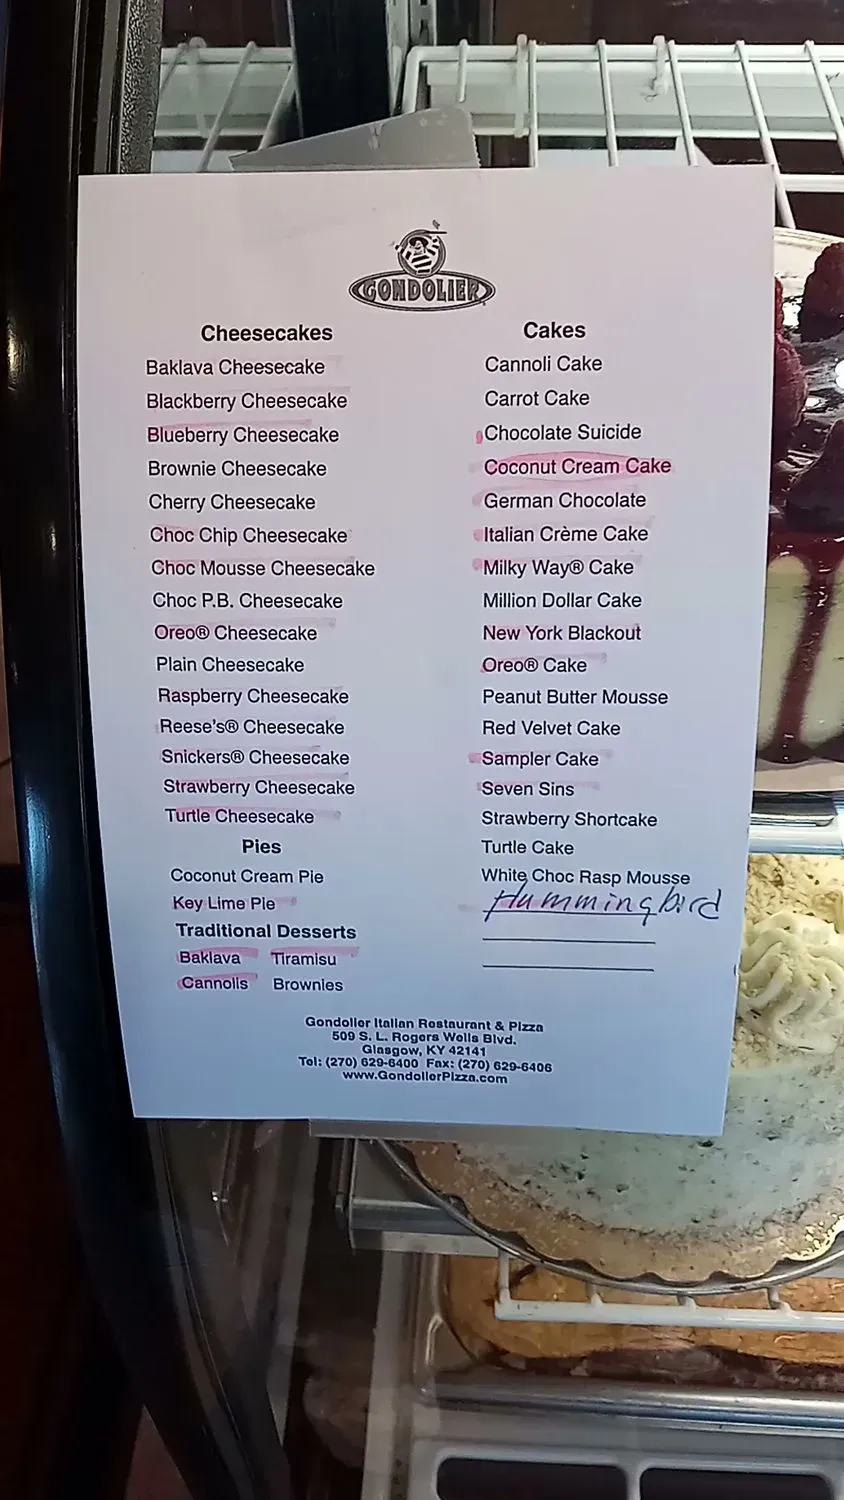 GONDOLIER
Cheesecakes
Baklava Cheesecake
Blackberry Cheesecake
Blueberry Cheesecake
Brownie Cheesecake
Cherry Cheesecake
Choc Chip Cheesecake
Choc Mousse Cheesecake
Choc P.B. Cheesecake
Oreo® Cheesecake
Plain Cheesecake
Raspberry Cheesecake
Reese's® Cheesecake
Snickers® Cheesecake
Strawberry Cheesecake
Turtle Cheesecake
Pies
Coconut Cream Pie
Key Lime Pie
Traditional Desserts
Baklava Tiramisu
Cannolis Brownies
Cakes
Cannoli Cake
Carrot Cake
Chocolate Suicide
Coconut Cream Cake
German Chocolate
Italian Crème Cake
Milky Way® Cake
Million Dollar Cake
New York Blackout
Oreo® Cake
Peanut Butter Mousse
Red Velvet Cake
Sampler Cake
Seven Sins
Strawberry Shortcake
Turtle Cake
White Choc Rasp Mousse
Hummingbird
Gondolier Italian Restaurant & Pizza
509 S. L. Rogers Wells Blvd.
Glasgow, KY 42141
Tel: (270) 629-6400 Fax: (270) 629-6406
www.GondolierPizza.com